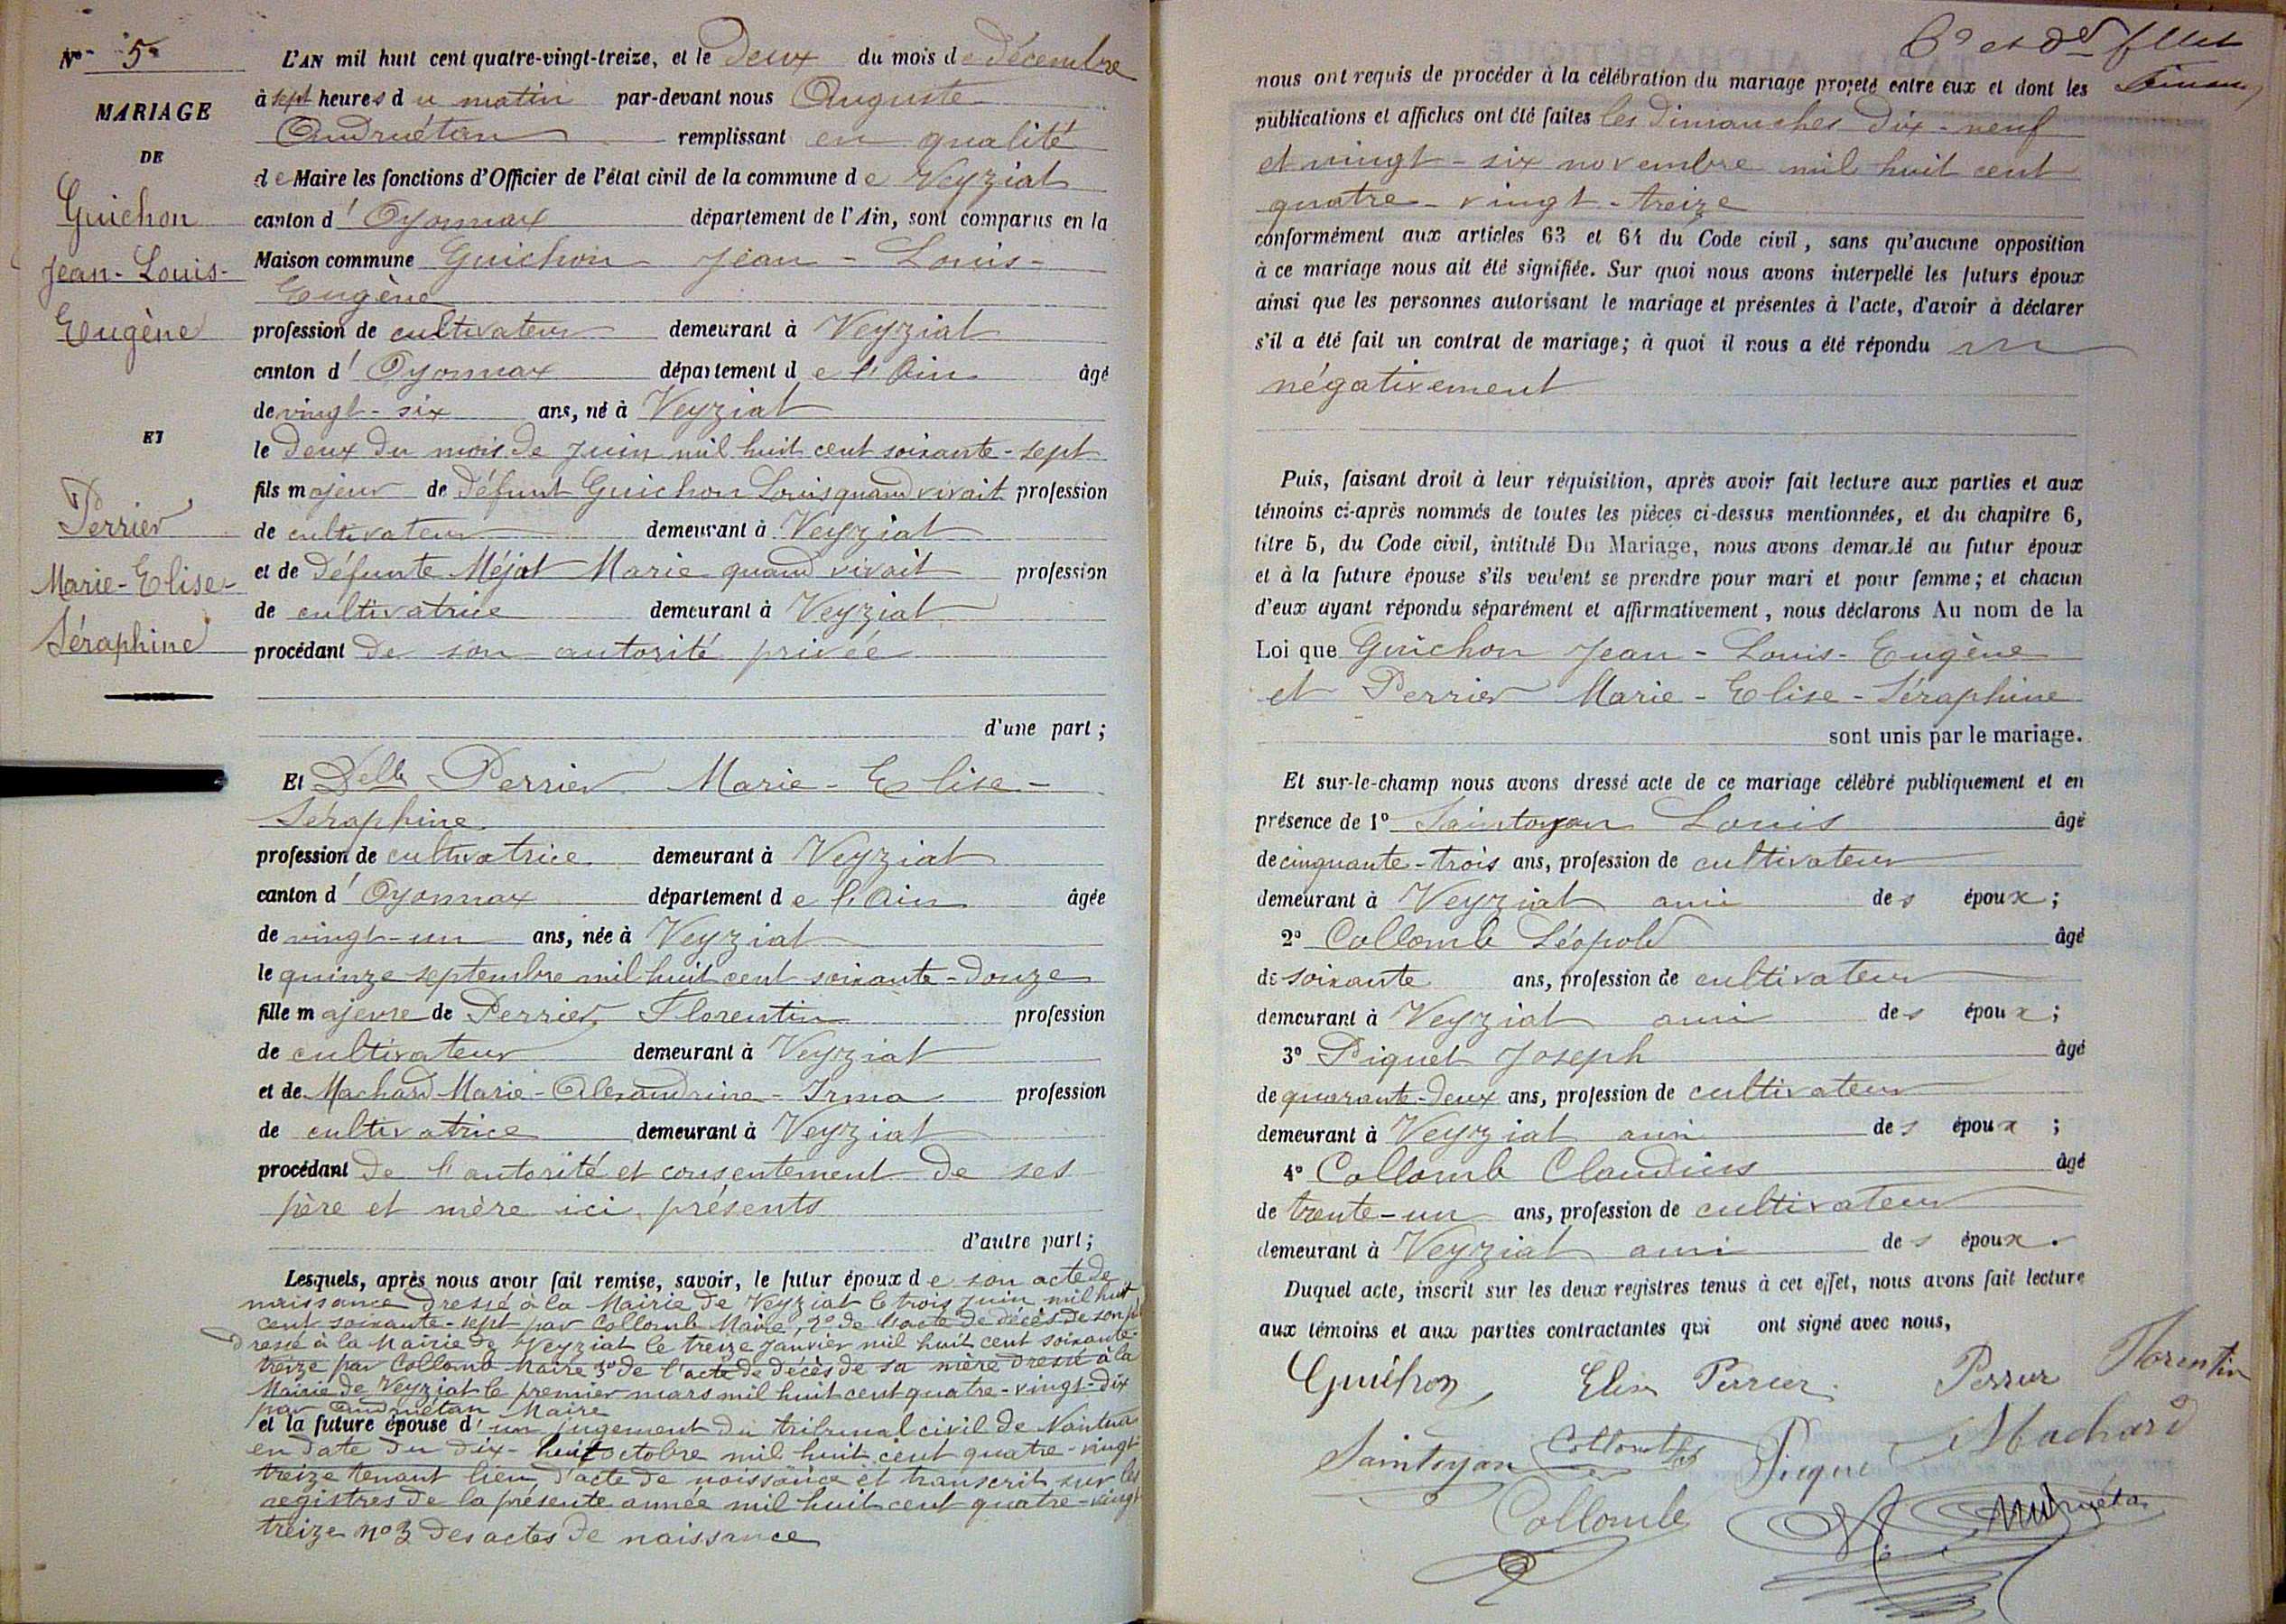 N° 5
MARIAGE
DE
Guichon
Jean-Louis-
Eugène
ET
Perrier
Marie-Elise-
Séraphine
L'AN mil huit cent quatre-vingt-treize, et le deux du mois de décembre
à sept heures du matin par-devant nous Auguste
Andruétan remplissant en qualité
de Maire les fonctions d'Officier de l'état civil de la commune de Veyziat
canton d'Oyonnax département de l'Ain, sont comparus en la
Maison commune Guichon Jean-Louis-
Eugène
profession de cultivateur demeurant à Veyziat
canton d'Oyonnax département de l'Ain âgé
de vingt-six ans, né à Veyziat
le deux du mois de Juin mil huit cent soixante-sept
fils majeur de défunt Guichon Louis quand vivait profession
de cultivateur demeurant à Veyziat
et de défunte Méjat Marie quand vivait profession
de cultivatrice demeurant à Veyziat
procédant de son autorité privée
d'une part ;
Et Delle Perrier Marie-Elise-
Séraphine
profession de cultivatrice demeurant à Veyziat
canton d'Oyonnax département de l'Ain âgée
de vingt-un ans, née à Veyziat
le quinze septembre mil huit cent soixante-douze
fille majeure de Perrier Florentin profession
de cultivateur demeurant à Veyziat
et de Machard Marie-Alexandrine-Irma profession
de cultivatrice demeurant à Veyziat
procédant de l'autorité et consentement de ses
père et mère ici présents
d'autre part ;
Lesquels, après nous avoir fait remise, savoir, le futur époux de son acte de
naissance dressé à la Mairie de Veyziat le trois juin mil huit
cent soixante-sept par Collomb Maire, 2° de l'acte de décès de son père
dressé à la Mairie de Veyziat le treize janvier mil huit cent soixante-
treize par Collomb Maire 3° de l'acte de décès de sa mère dressé à la
Mairie de Veyziat le premier mars mil huit cent quatre-vingt-dix
par Andruétan Maire
et la future épouse d'un jugement du tribunal civil de Nantua
en date du dix-huit octobre mil huit cent quatre-vingt
treize tenant lieu d'acte de naissance et transcrit sur les
registres de la présente année mil huit cent quatre-vingt
treize n° 3 des actes de naissance
nous ont requis de procéder à la célébration du mariage projeté entre eux et dont les
publications et affiches ont été faites les dimanches dix-neuf
et vingt-six novembre mil huit cent
quatre-vingt-treize
conformément aux articles 63 et 64 du Code civil, sans qu'aucune opposition
à ce mariage nous ait été signifiée. Sur quoi nous avons interpellé les futurs époux
ainsi que les personnes autorisant le mariage et présentes à l'acte, d'avoir à déclarer
s'il a été fait un contrat de mariage ; à quoi il nous a été répondu
négativement
Puis, faisant droit à leur réquisition, après avoir fait lecture aux parties et aux
témoins ci-après nommés de toutes les pièces ci-dessus mentionnées, et du chapitre 6,
titre 5, du Code civil, intitulé Du Mariage, nous avons demandé au futur époux
et à la future épouse s'ils veulent se prendre pour mari et pour femme ; et chacun
d'eux ayant répondu séparément et affirmativement, nous déclarons Au nom de la
Loi que Guichon Jean-Louis-Eugène
et Perrier Marie-Elise-Séraphine
sont unis par le mariage.
Et sur-le-champ nous avons dressé acte de ce mariage célébré publiquement et en
présence de 1° Saintoyan Louis âgé
de cinquante-trois ans, profession de cultivateur
demeurant à Veyziat ami des époux ;
2° Collomb Léopold âgé
de soixante ans, profession de cultivateur
demeurant à Veyziat ami des époux ;
3° Piquet Joseph âgé
de quarante-deux ans, profession de cultivateur
demeurant à Veyziat ami des époux ;
4° Collomb Claudius âgé
de trente-un ans, profession de cultivateur
demeurant à Veyziat ami des époux.
Duquel acte, inscrit sur les deux registres tenus à cet effet, nous avons fait lecture
aux témoins et aux parties contractantes qui ont signé avec nous,
Guichon Elise Perrier Perrier Florentin
Saintoyan Collomb Piquet Machard
Collomb Andruétan